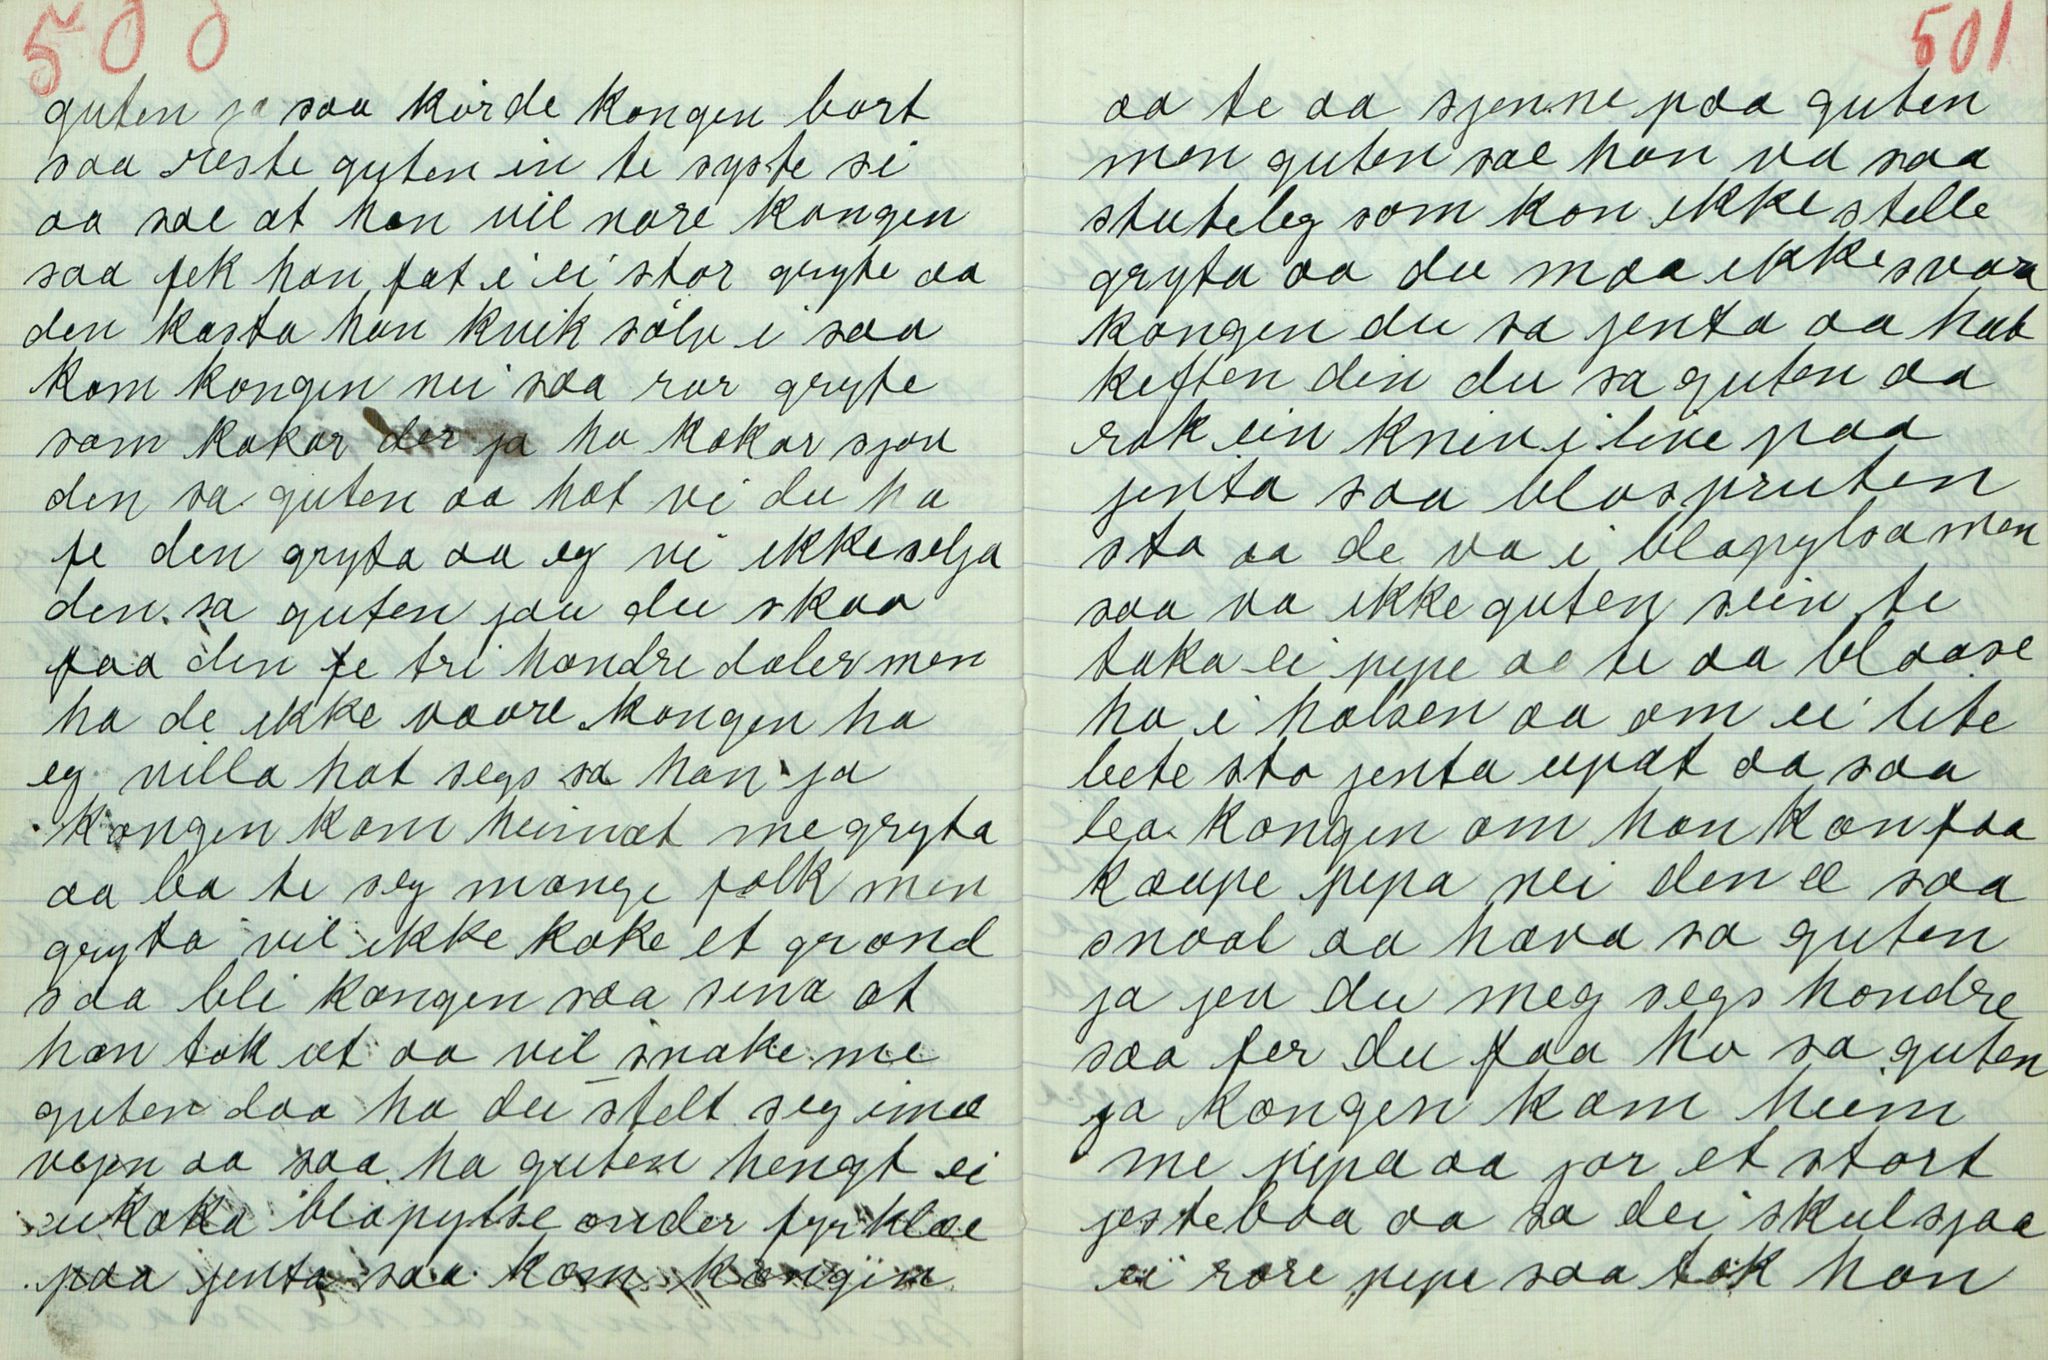 500
guten ja saa kördе kongen bort
saa reste guten in te syste si
aa sae at han vil nare kongen
saa fek han fat i ei stor gryte aa
den kasta han kvik sölv i saa
kom kongen nei saa rar gryte
som kokar der ja ho kokar sjøv
den sa guten aa hot vi du ha
fe den gryta aa eg vi ikke selja
den sa guten jau du skaa
faa den fe tri hondre daler men
ha de ikke vaare kongen ha
eg villa hat segs sa han ja
kongen kom heimat me gryta
aa ba te seg mange folk men
gryta vil ikke koke et grand
saa bli kongen saa sina at
han tok ut aa vil snake me
guten daa ha du stelt seg imæ
vejen aa saa ha guten hengt ei
ukoka blapylse onder fyrklæe
paa jenta saa kom kongin
501
aa te aa sjenne paa guten
men guten sae han va saa
stuteleg som kon ikke stelle
gryta aa du maa ikke svara
kongen du sa jenta aa hal
keften din du sa guten aa
rak ein kniv i live paa
jenta saa blaspruten
sto aa de va i blapylsa men
saa va ikke guten sein te
taka ei pipe ae te aa blaase
ho i halsen aa om ei lite
bete sto jenta upat aa saa
bea kongen om han kan faa
kaupe pipa nei den æ saa
snaal aa hava sa guten
ja jev du meg segs hondre
saa fer du faa ho sa guten
ja kongen kom heim
me pipa aa jor et stort
jestebaa aa sa dei skul sjaa
ei rare pipe saa tok han